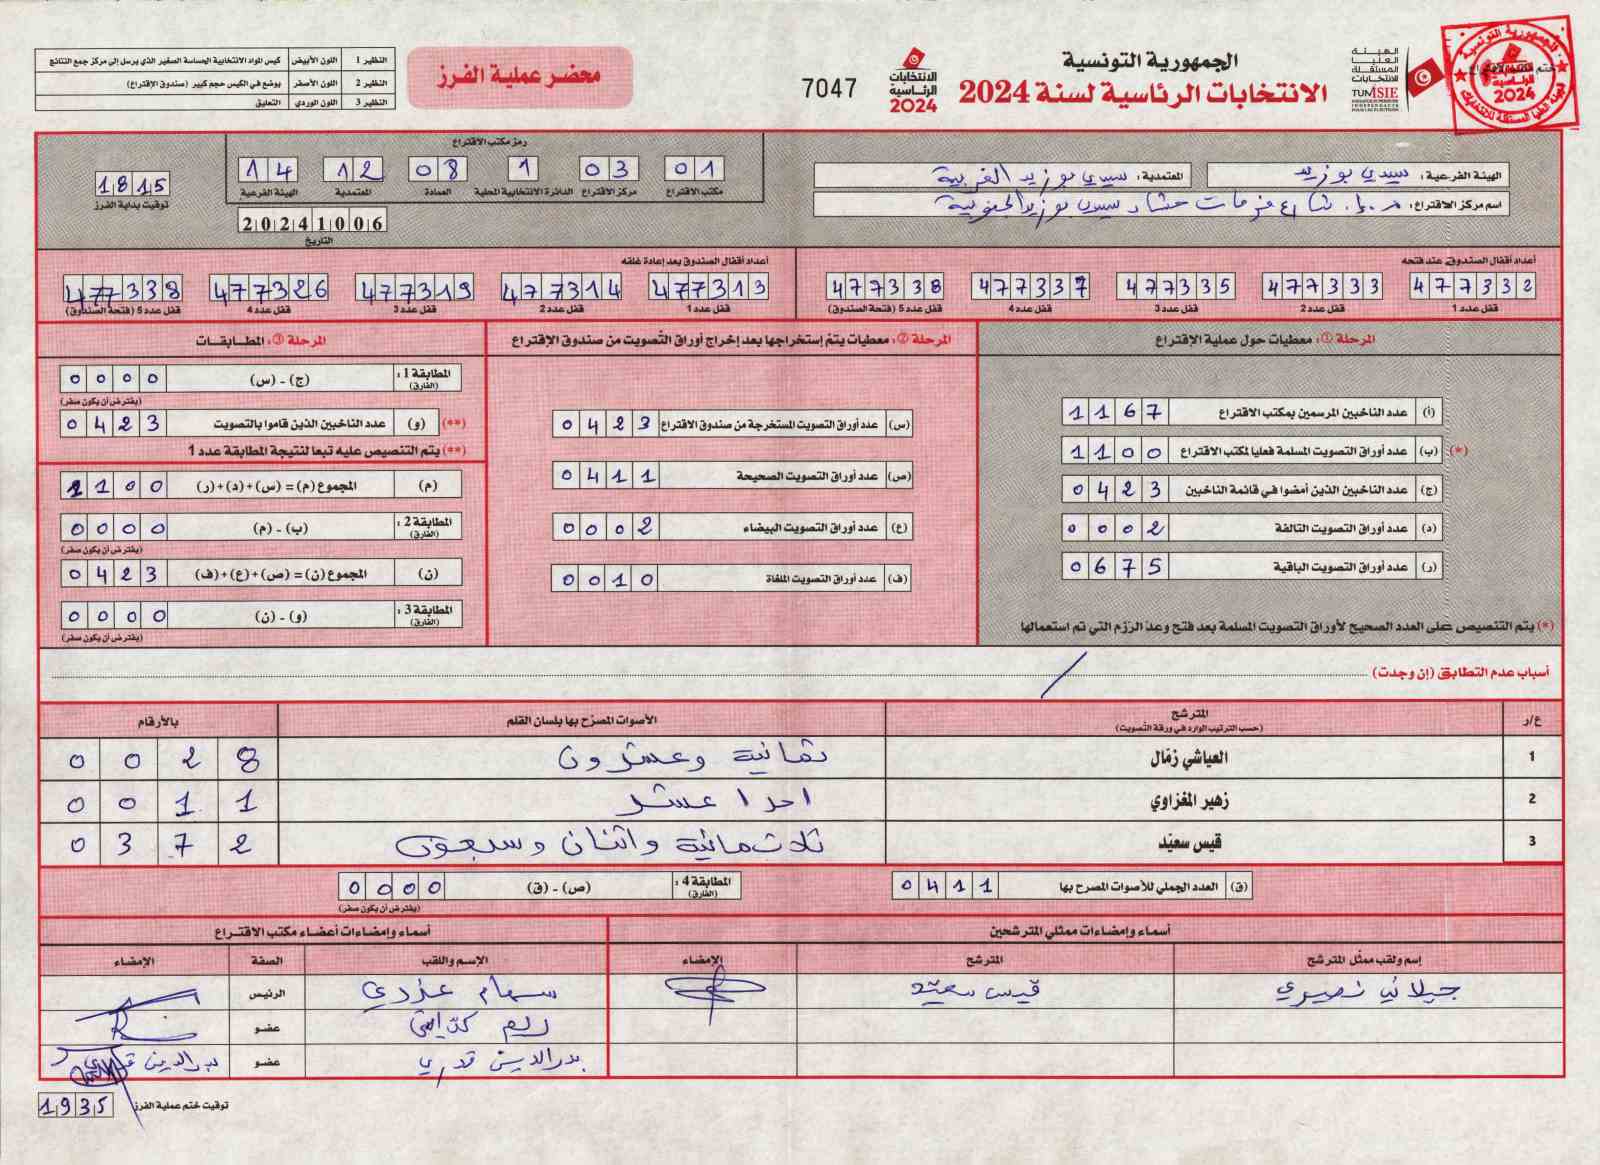 الجمهورية التونسية
الانتخابات الرئاسية لسنة 2024
الهيئة
العليا
المستقلة
للانتخابات
TUNISIE
الانتخابات
الرئاسية
2024
7047
محضر عملية الفرز
النظير 1 اللون الأبيض كيس المواد الانتخابية الحساسة الصغير الذي يرسل إلى مركز جمع النتائج
النظير 2 اللون الأصفر يوضع في الكيس حجم كبير (صندوق الإقتراع)
النظير 3 اللون الوردي التعليق
الهيئة الفرعية: سيدي بوزيد
المعتمدية: سيدي بوزيد الغربية
اسم مركز الاقتراع: م.إ. شارع فرحات حشاد سيدي بوزيد الجنوبية
رمز مكتب الاقتراع
01 03 1 08 12 14
مكتب الاقتراع مركز الاقتراع الدائرة الانتخابية المحلية العمادة المعتمدية الهيئة الفرعية
1815
توقيت بداية الفرز
20241006
التاريخ
أعداد أقفال الصندوق عند فتحه
477332 477333 477335 477337 477338
قفل عدد 1 قفل عدد 2 قفل عدد 3 قفل عدد 4 قفل عدد 5 (فتحة الصندوق)
أعداد أقفال الصندوق بعد إعادة غلقه
477313 477314 477319 477326 477338
قفل عدد 1 قفل عدد 2 قفل عدد 3 قفل عدد 4 قفل عدد 5 (فتحة الصندوق)
المرحلة ①: معطيات حول عملية الإقتراع
(أ) عدد الناخبين المرسمين بمكتب الاقتراع 1167
(*) (ب) عدد أوراق التصويت المسلمة فعليا لمكتب الاقتراع 1100
(ج) عدد الناخبين الذين أمضوا في قائمة الناخبين 0423
(د) عدد أوراق التصويت التالفة 0002
(ر) عدد أوراق التصويت الباقية 0675
(*) يتم التنصيص على العدد الصحيح لأوراق التصويت المسلمة بعد فتح وعدّ الرّزم التي تم استعمالها
المرحلة ②: معطيات يتم إستخراجها بعد إخراج أوراق التصويت من صندوق الإقتراع
(س) عدد أوراق التصويت المستخرجة من صندوق الاقتراع 0423
(ص) عدد أوراق التصويت الصحيحة 0411
(ع) عدد أوراق التصويت البيضاء 0002
(ف) عدد أوراق التصويت الملغاة 0010
المرحلة ③: المطابقات
المطابقة 1: (الفارق) (ج) - (س) 0000
(يفترض أن يكون صفر)
(**) (و) عدد الناخبين الذين قاموا بالتصويت 0423
(**) يتم التنصيص عليه تبعا لنتيجة المطابقة عدد 1
(م) المجموع (م) = (س)+(د)+(ر) 1100
المطابقة 2: (الفارق) (ب) - (م) 0000
(يفترض أن يكون صفر)
(ن) المجموع (ن) = (ص)+(ع)+(ف) 0423
المطابقة 3: (الفارق) (و) - (ن) 0000
(يفترض أن يكون صفر)
أسباب عدم التطابق (إن وجدت) /
ع/ر المترشح الأصوات المصرّح بها بلسان القلم بالأرقام
(حسب الترتيب الوارد في ورقة التصويت)
1 العياشي زمّال ثمانية وعشرون 0028
2 زهير المغزاوي احدا عشر 0011
3 قيس سعيّد ثلاث مائية واثنان وسبعون 0372
(ق) العدد الجملي للأصوات المصرح بها 0411
المطابقة 4: (الفارق) (ص) - (ق) 0000
(يفترض أن يكون صفر)
أسماء وإمضاءات ممثلي المترشحين
إسم ولقب ممثّل المترشح المترشح الإمضاء
جيلاني نصيري قيس سعيّد
أسماء وإمضاءات أعضاء مكتب الاقتراع
الإسم واللقب الصفة الإمضاء
سهام الرئيس
عضو
بدر الدين قدري عضو بدر الدين
توقيت ختم عملية الفرز 1935